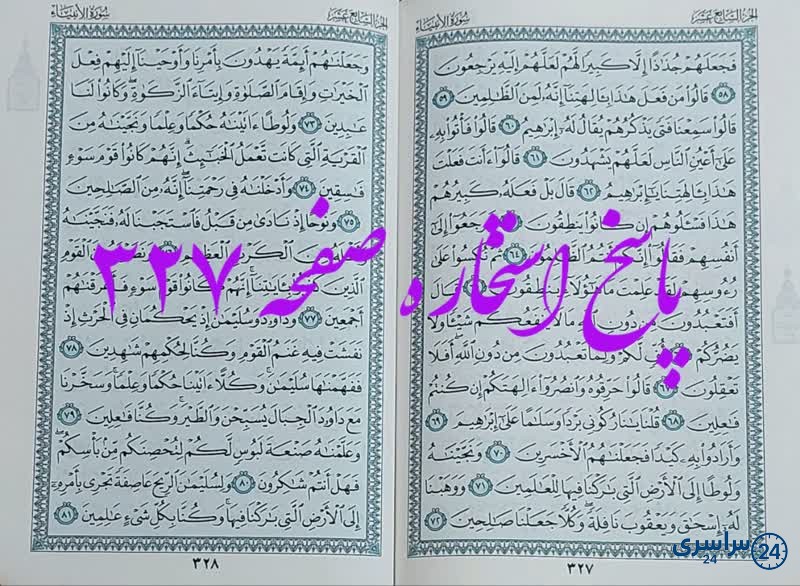 الجزء السابع عشر
سورة الأنبياء
فَجَعَلَهُمْ جُذَٰذًا إِلَّا كَبِيرًا لَّهُمْ لَعَلَّهُمْ إِلَيْهِ يَرْجِعُونَ
٥٨ قَالُوا۟ مَن فَعَلَ هَٰذَا بِـَٔالِهَتِنَآ إِنَّهُۥ لَمِنَ ٱلظَّٰلِمِينَ ٥٩
قَالُوا۟ سَمِعْنَا فَتًى يَذْكُرُهُمْ يُقَالُ لَهُۥٓ إِبْرَٰهِيمُ ٦٠ قَالُوا۟ فَأْتُوا۟ بِهِۦ
عَلَىٰٓ أَعْيُنِ ٱلنَّاسِ لَعَلَّهُمْ يَشْهَدُونَ ٦١ قَالُوٓا۟ ءَأَنتَ فَعَلْتَ
هَٰذَا بِـَٔالِهَتِنَا يَٰٓإِبْرَٰهِيمُ ٦٢ قَالَ بَلْ فَعَلَهُۥ كَبِيرُهُمْ
هَٰذَا فَسْـَٔلُوهُمْ إِن كَانُوا۟ يَنطِقُونَ فَرَجَعُوٓا۟ إِلَىٰٓ
أَنفُسِهِمْ فَقَالُوٓا۟ إِنَّكُمْ أَنتُمُ ٱلظَّٰلِمُونَ ٦٤ ثُمَّ نُكِسُوا۟ عَلَىٰ
رُءُوسِهِمْ لَقَدْ عَلِمْتَ مَا هَٰٓؤُلَآءِ يَنطِقُونَ قَالَ
أَفَتَعْبُدُونَ مِن دُونِ ٱللَّهِ مَا لَا يَنفَعُكُمْ شَيْـًٔا وَلَا
يَضُرُّكُمْ أُفٍّ لَّكُمْ وَلِمَا تَعْبُدُونَ مِن دُونِ ٱللَّهِ أَفَلَا
تَعْقِلُونَ ٦٧ قَالُوا۟ حَرِّقُوهُ وَٱنصُرُوٓا۟ ءَالِهَتَكُمْ إِن كُنتُمْ
فَٰعِلِينَ ٦٨ قُلْنَا يَٰنَارُ كُونِى بَرْدًا وَسَلَٰمًا عَلَىٰٓ إِبْرَٰهِيمَ ٦٩
وَأَرَادُوا۟ بِهِۦ كَيْدًا فَجَعَلْنَٰهُمُ ٱلْأَخْسَرِينَ ٧٠ وَنَجَّيْنَٰهُ
وَلُوطًا إِلَى ٱلْأَرْضِ ٱلَّتِى بَٰرَكْنَا فِيهَا لِلْعَٰلَمِينَ ٧١ وَوَهَبْنَا
لَهُۥٓ إِسْحَٰقَ وَيَعْقُوبَ نَافِلَةً وَكُلًّا جَعَلْنَا صَٰلِحِينَ ٧٢
٣٢٧
الجزء السابع عشر
سورة الأنبياء
وَجَعَلْنَٰهُمْ أَئِمَّةً يَهْدُونَ بِأَمْرِنَا وَأَوْحَيْنَآ إِلَيْهِمْ فِعْلَ
ٱلْخَيْرَٰتِ وَإِقَامَ ٱلصَّلَوٰةِ وَإِيتَآءَ ٱلزَّكَوٰةِ وَكَانُوا۟ لَنَا
عَٰبِدِينَ ٧٣ وَلُوطًا ءَاتَيْنَٰهُ حُكْمًا وَعِلْمًا وَنَجَّيْنَٰهُ مِنَ
ٱلْقَرْيَةِ ٱلَّتِى كَانَت تَّعْمَلُ ٱلْخَبَٰٓئِثَ إِنَّهُمْ كَانُوا۟ قَوْمَ سَوْءٍ
فَٰسِقِينَ ٧٤ وَأَدْخَلْنَٰهُ فِى رَحْمَتِنَآ إِنَّهُۥ مِنَ ٱلصَّٰلِحِينَ
٧٥ وَنُوحًا إِذْ نَادَىٰ مِن قَبْلُ فَٱسْتَجَبْنَا لَهُۥ فَنَجَّيْنَٰهُ
وَأَهْلَهُۥ مِنَ ٱلْكَرْبِ ٱلْعَظِيمِ ٧٦ وَنَصَرْنَٰهُ مِنَ ٱلْقَوْمِ
ٱلَّذِينَ كَذَّبُوا۟ بِـَٔايَٰتِنَآ إِنَّهُمْ كَانُوا۟ قَوْمَ سَوْءٍ فَأَغْرَقْنَٰهُمْ
أَجْمَعِينَ ٧٧ وَدَاوُۥدَ وَسُلَيْمَٰنَ إِذْ يَحْكُمَانِ فِى ٱلْحَرْثِ إِذْ
نَفَشَتْ فِيهِ غَنَمُ ٱلْقَوْمِ وَكُنَّا لِحُكْمِهِمْ شَٰهِدِينَ ٧٨
فَفَهَّمْنَٰهَا سُلَيْمَٰنَ وَكُلًّا ءَاتَيْنَا حُكْمًا وَعِلْمًا وَسَخَّرْنَا
مَعَ دَاوُۥدَ ٱلْجِبَالَ يُسَبِّحْنَ وَٱلطَّيْرَ وَكُنَّا فَٰعِلِينَ ٧٩
وَعَلَّمْنَٰهُ صَنْعَةَ لَبُوسٍ لَّكُمْ لِتُحْصِنَكُم مِّنۢ بَأْسِكُمْ
فَهَلْ أَنتُمْ شَٰكِرُونَ ٨٠ وَلِسُلَيْمَٰنَ ٱلرِّيحَ عَاصِفَةً تَجْرِى بِأَمْرِهِۦٓ
إِلَى ٱلْأَرْضِ ٱلَّتِى بَٰرَكْنَا فِيهَا وَكُنَّا بِكُلِّ شَىْءٍ عَٰلِمِينَ ٨١
٣٢٨
پاسخ استخاره صفحه ۳۲۷
سراسری
24
24